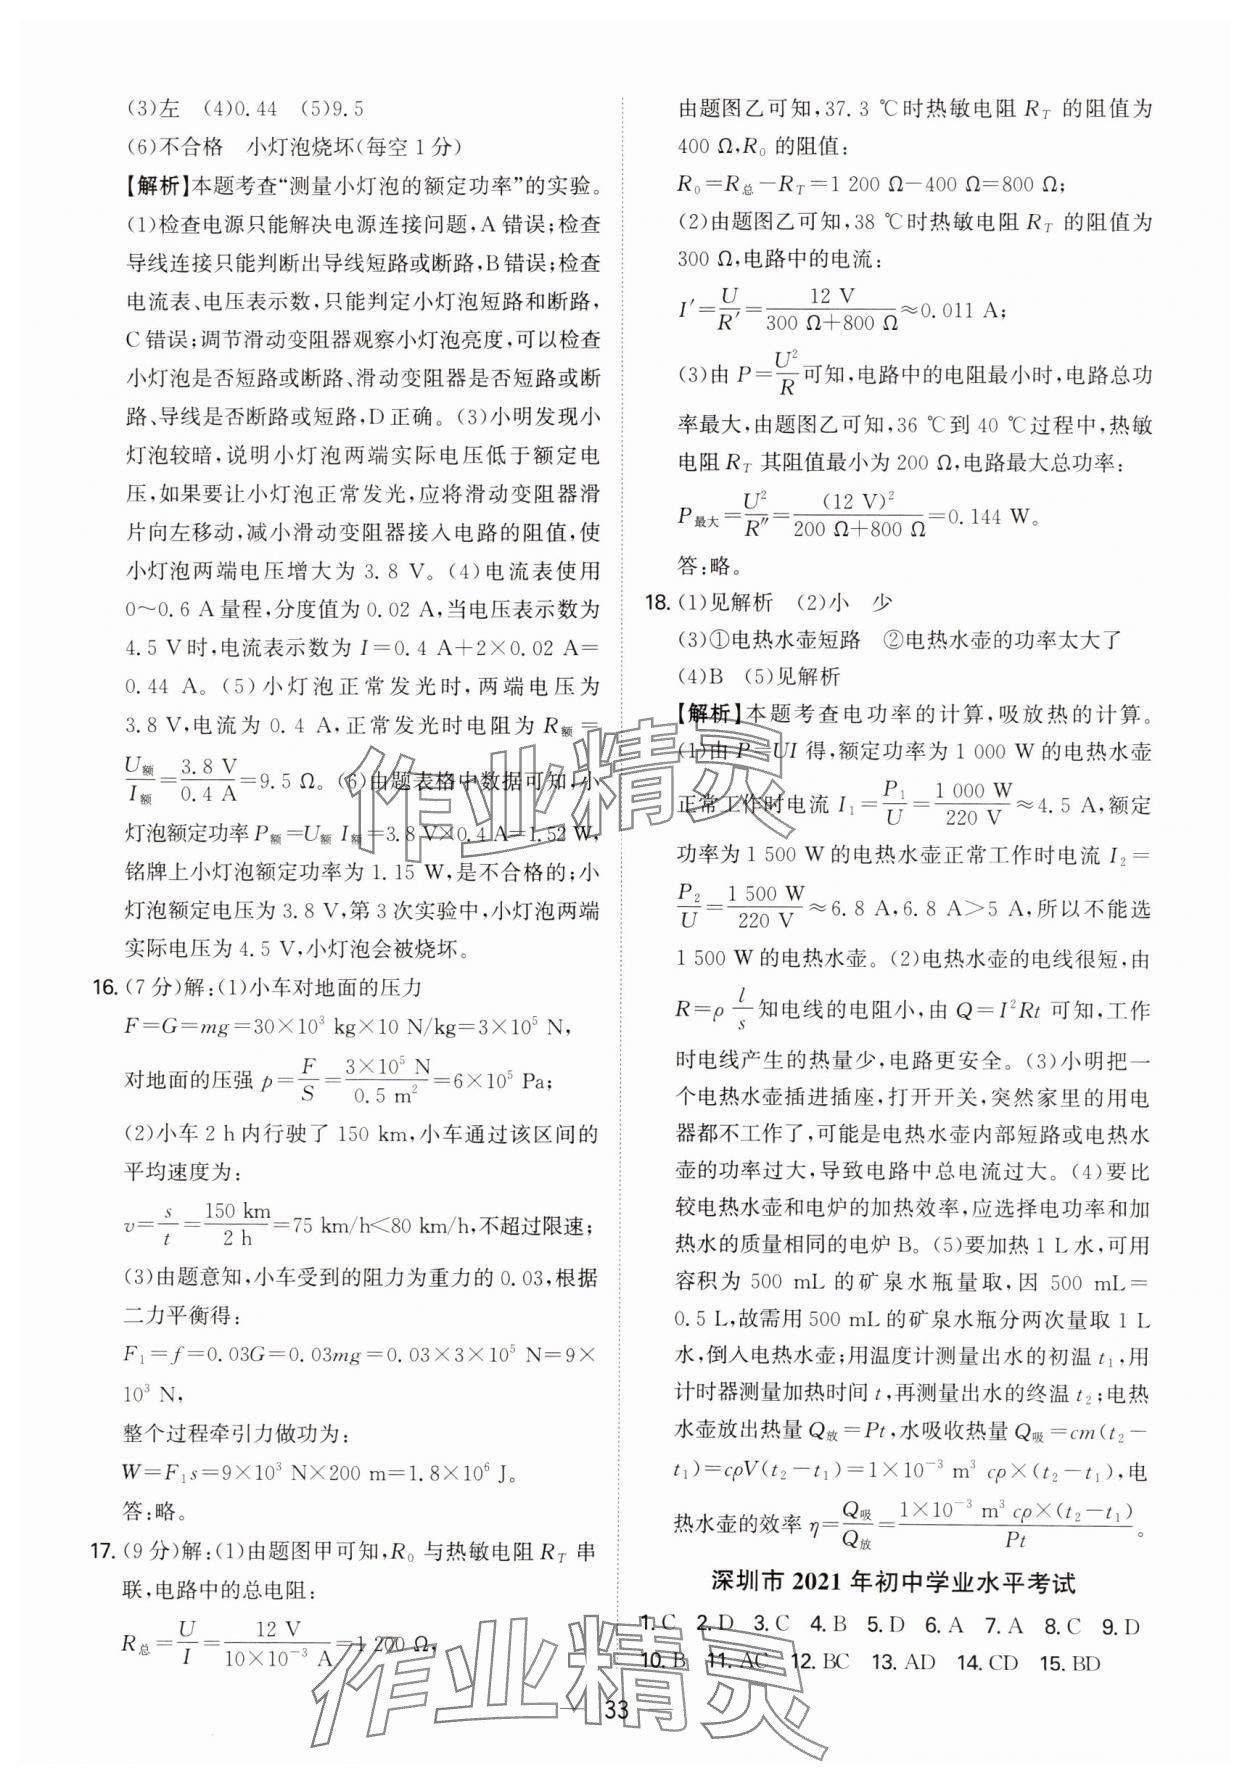 (3)左　(4)0.44　(5)9.5
(6)不合格　小灯泡烧坏(每空1分)
【解析】本题考查“测量小灯泡的额定功率”的实验。
(1)检查电源只能解决电源连接问题,A错误;检查
导线连接只能判断出导线短路或断路,B错误;检查
电流表、电压表示数,只能判定小灯泡短路和断路,
C错误;调节滑动变阻器观察小灯泡亮度,可以检查
小灯泡是否短路或断路、滑动变阻器是否短路或断
路、导线是否断路或短路,D正确。(3)小明发现小
灯泡较暗,说明小灯泡两端实际电压低于额定电
压,如果要让小灯泡正常发光,应将滑动变阻器滑
片向左移动,减小滑动变阻器接入电路的阻值,使
小灯泡两端电压增大为3.8 V。(4)电流表使用
0～0.6 A量程,分度值为0.02 A,当电压表示数为
4.5 V时,电流表示数为I=0.4 A+2×0.02 A=
0.44 A。(5)小灯泡正常发光时,两端电压为
3.8 V,电流为0.4 A,正常发光时电阻为R额=
U额/I额=3.8 V/0.4 A=9.5 Ω。(6)由题表格中数据可知,小
灯泡额定功率P额=U额 I额=3.8 V×0.4 A=1.52 W,
铭牌上小灯泡额定功率为1.15 W,是不合格的;小
灯泡额定电压为3.8 V,第3次实验中,小灯泡两端
实际电压为4.5 V,小灯泡会被烧坏。
16.(7分)解:(1)小车对地面的压力
F=G=mg=30×10³ kg×10 N/kg=3×10⁵ N,
对地面的压强p=F/S=3×10⁵ N/0.5 m²=6×10⁵ Pa;
(2)小车2 h内行驶了150 km,小车通过该区间的
平均速度为:
v=s/t=150 km/2 h=75 km/h<80 km/h,不超过限速;
(3)由题意知,小车受到的阻力为重力的0.03,根据
二力平衡得:
F₁=f=0.03G=0.03mg=0.03×3×10⁵ N=9×
10³ N,
整个过程牵引力做功为:
W=F₁s=9×10³ N×200 m=1.8×10⁶ J。
答:略。
17.(9分)解:(1)由题图甲可知,R₀与热敏电阻R_T串
联,电路中的总电阻:
R总=U/I=12 V/10×10⁻³ A=1 200 Ω,
由题图乙可知,37.3 ℃时热敏电阻R_T的阻值为
400 Ω,R₀的阻值:
R₀=R总−R_T=1 200 Ω−400 Ω=800 Ω;
(2)由题图乙可知,38 ℃时热敏电阻R_T的阻值为
300 Ω,电路中的电流:
I′=U/R′=12 V/300 Ω+800 Ω≈0.011 A;
(3)由P=U²/R可知,电路中的电阻最小时,电路总功
率最大,由题图乙可知,36 ℃到40 ℃过程中,热敏
电阻R_T其阻值最小为200 Ω,电路最大总功率:
P最大=U²/R″=(12 V)²/200 Ω+800 Ω=0.144 W。
答:略。
18.(1)见解析　(2)小　少
(3)①电热水壶短路　②电热水壶的功率太大了
(4)B　(5)见解析
【解析】本题考查电功率的计算,吸放热的计算。
(1)由P=UI得,额定功率为1 000 W的电热水壶
正常工作时电流I₁=P₁/U=1 000 W/220 V≈4.5 A,额定
功率为1 500 W的电热水壶正常工作时电流I₂=
P₂/U=1 500 W/220 V≈6.8 A,6.8 A>5 A,所以不能选
1 500 W的电热水壶。(2)电热水壶的电线很短,由
R=ρ l/s知电线的电阻小,由Q=I²Rt可知,工作
时电线产生的热量少,电路更安全。(3)小明把一
个电热水壶插进插座,打开开关,突然家里的用电
器都不工作了,可能是电热水壶内部短路或电热水
壶的功率过大,导致电路中总电流过大。(4)要比
较电热水壶和电炉的加热效率,应选择电功率和加
热水的质量相同的电炉B。(5)要加热1 L水,可用
容积为500 mL的矿泉水瓶量取,因500 mL=
0.5 L,故需用500 mL的矿泉水瓶分两次量取1 L
水,倒入电热水壶;用温度计测量出水的初温t₁,用
计时器测量加热时间t,再测量出水的终温t₂;电热
水壶放出热量Q放=Pt,水吸收热量Q吸=cm(t₂−
t₁)=cρV(t₂−t₁)=1×10⁻³ m³ cρ×(t₂−t₁),电
热水壶的效率η=Q吸/Q放=1×10⁻³ m³ cρ×(t₂−t₁)/Pt。
深圳市2021年初中学业水平考试
1.C　2.D　3.C　4.B　5.D　6.A　7.A　8.C　9.D
10.B　11.AC　12.BC　13.AD　14.CD　15.BD
33
作业精灵
作业精灵